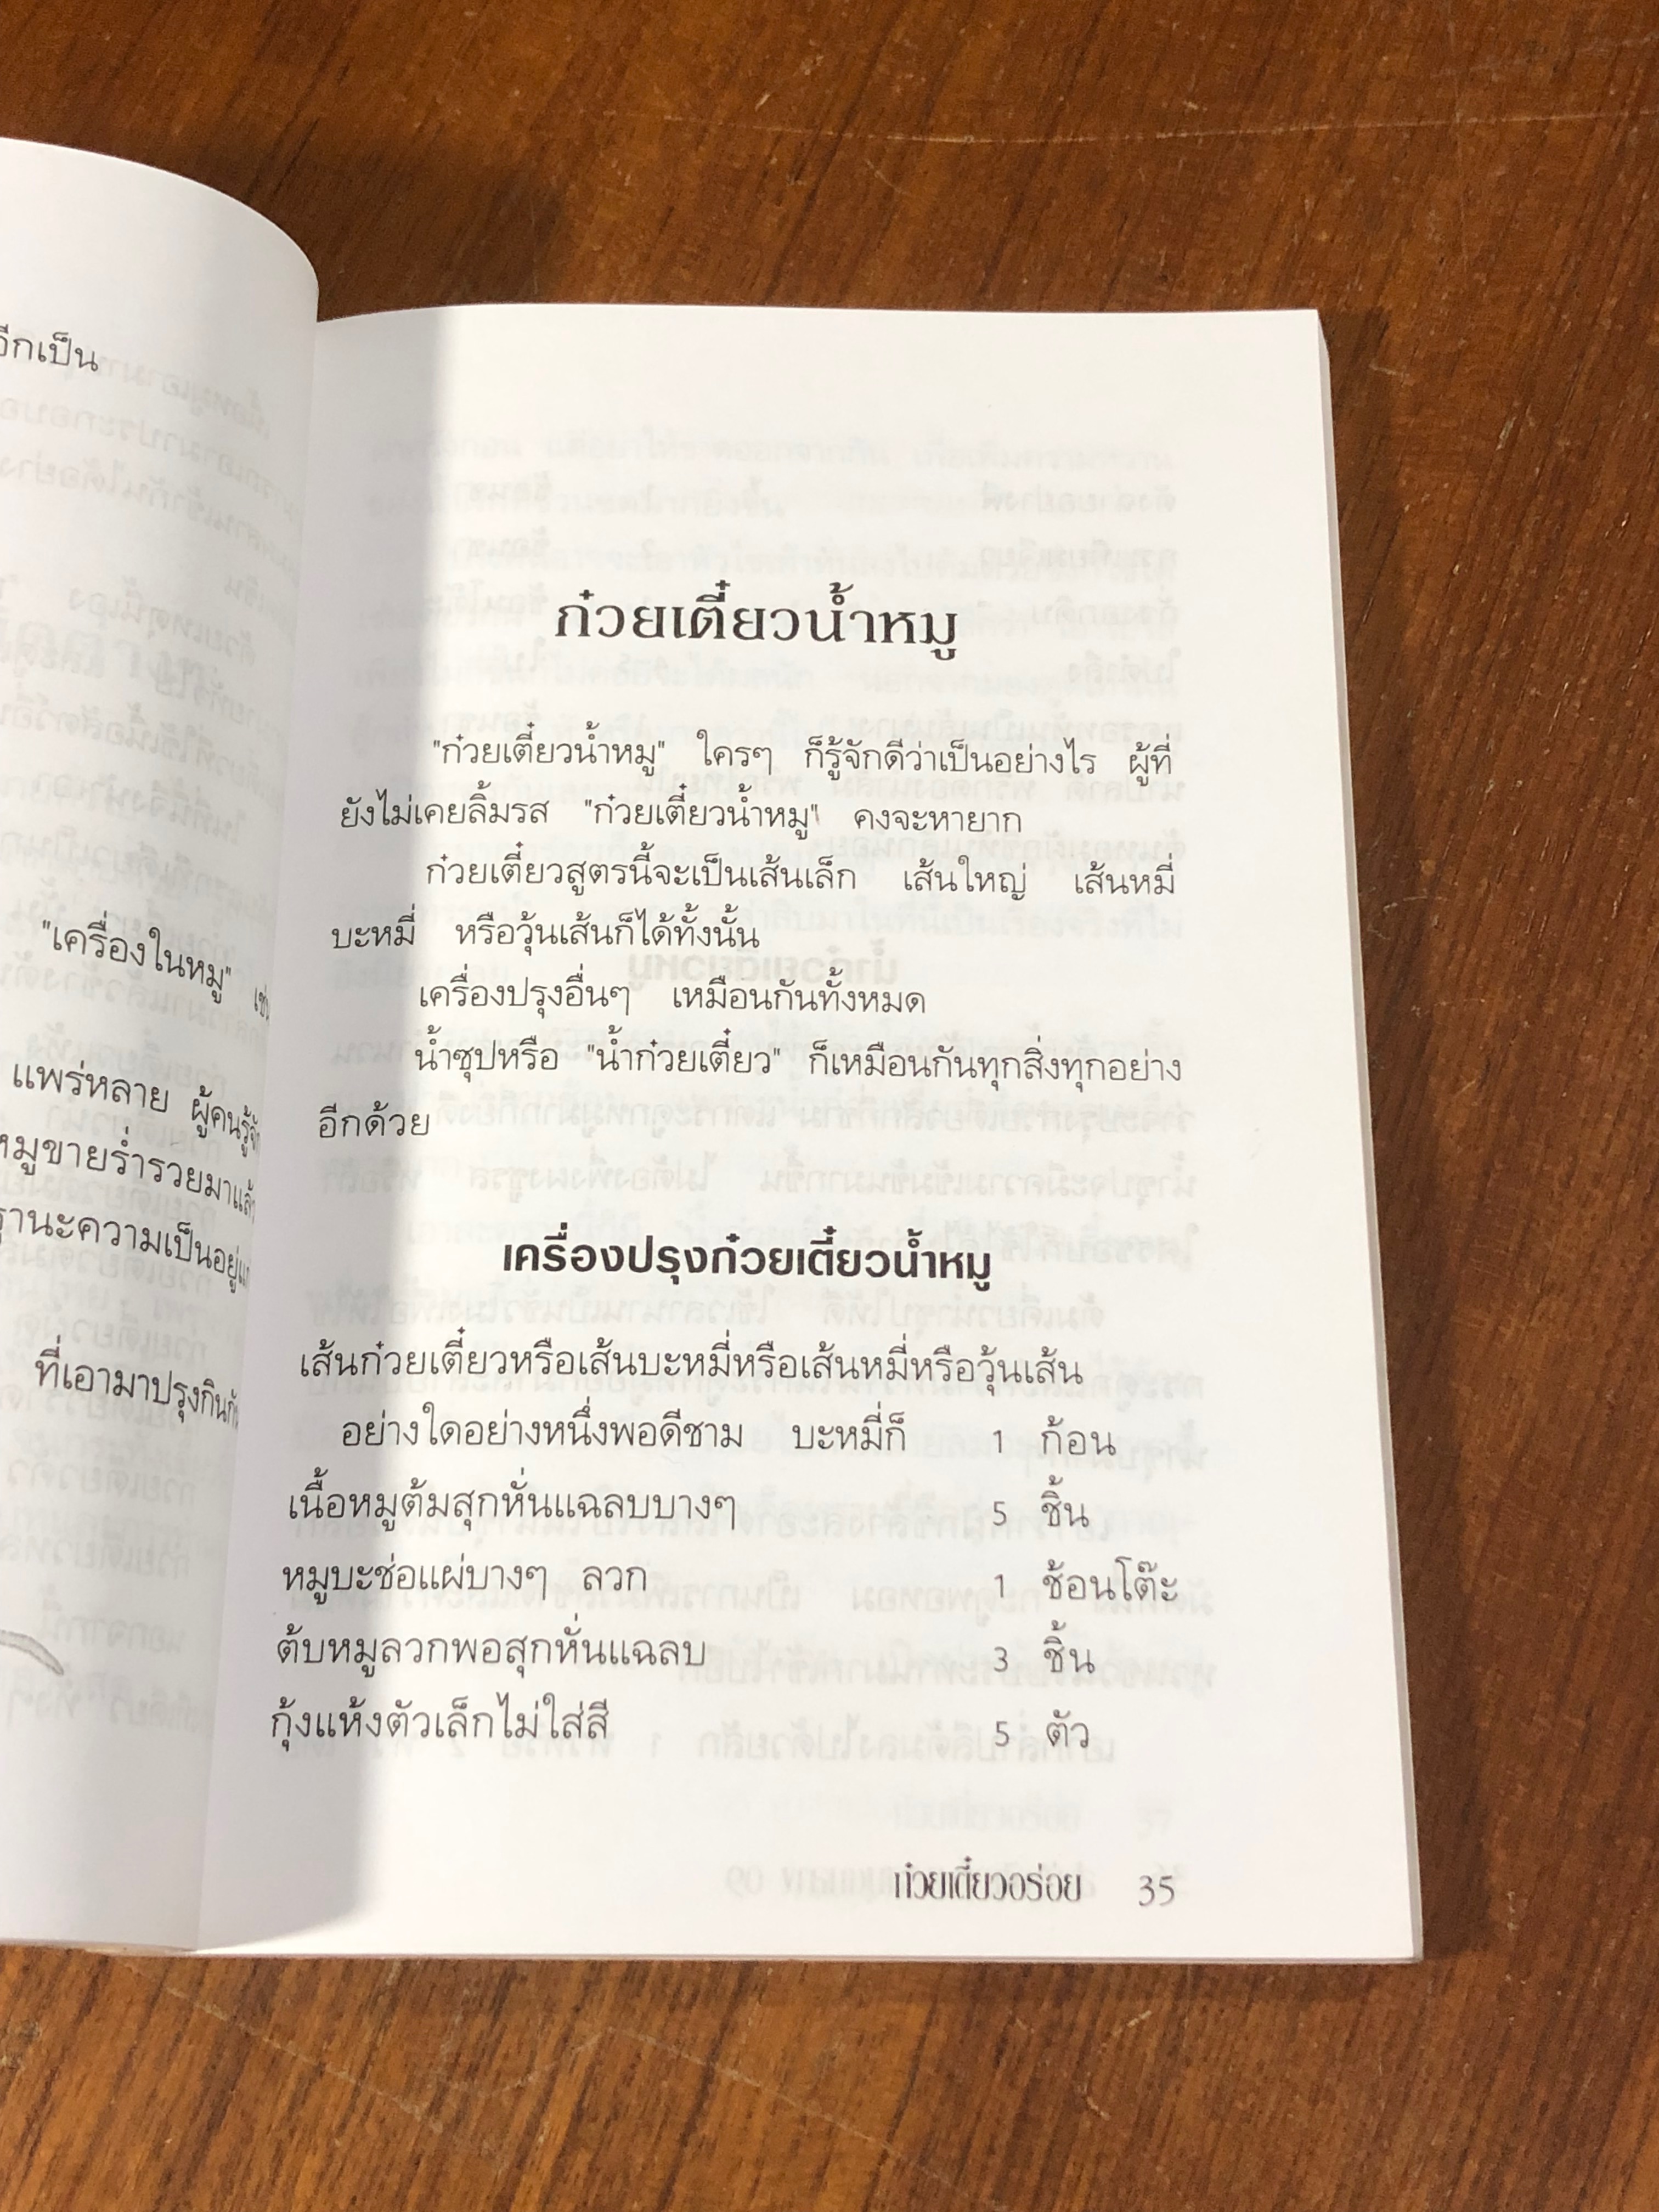 อีกเป็น
"เครื่องในหมู" เช่น
แพร่หลาย ผู้คนรู้จัก
หมูขายร่ำรวยมาแล้ว
ฐานะความเป็นอยู่
ที่เอามาปรุงกิน
ก๋วยเตี๋ยวน้ำหมู
"ก๋วยเตี๋ยวน้ำหมู" ใครๆ ก็รู้จักดีว่าเป็นอย่างไร ผู้ที่
ยังไม่เคยลิ้มรส "ก๋วยเตี๋ยวน้ำหมู" คงจะหายาก
ก๋วยเตี๋ยวสูตรนี้จะเป็นเส้นเล็ก เส้นใหญ่ เส้นหมี่
บะหมี่ หรือวุ้นเส้นก็ได้ทั้งนั้น
เครื่องปรุงอื่นๆ เหมือนกันทั้งหมด
น้ำซุปหรือ "น้ำก๋วยเตี๋ยว" ก็เหมือนกันทุกสิ่งทุกอย่าง
อีกด้วย
เครื่องปรุงก๋วยเตี๋ยวน้ำหมู
เส้นก๋วยเตี๋ยวหรือเส้นบะหมี่หรือเส้นหมี่หรือวุ้นเส้น
อย่างใดอย่างหนึ่งพอดีชาม บะหมี่ก็ 1 ก้อน
เนื้อหมูต้มสุกหั่นแฉลบบางๆ 5 ชิ้น
หมูบะช่อแผ่บางๆ ลวก 1 ช้อนโต๊ะ
ตับหมูลวกพอสุกหั่นแฉลบ 3 ชิ้น
กุ้งแห้งตัวเล็กไม่ใส่สี 5 ตัว
ก๋วยเตี๋ยวอร่อย 35